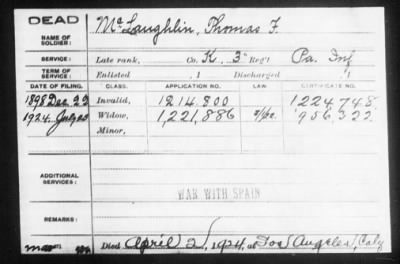 DEAD
NAME OF SOLDIER: McLaughlin, Thomas F.
SERVICE: Late rank, Co. K, 3" Reg't Pa. Inf
TERM OF SERVICE: Enlisted , 1 Discharged , 1
DATE OF FILING. CLASS. APPLICATION NO. LAW. CERTIFICATE NO.
1898 Dec 22 Invalid, 1214.800 1224.748.
1924. July Widow, 1,221,886 956,322
Minor,
ADDITIONAL SERVICES:
WAR WITH SPAIN
REMARKS:
Died April 2, 1924, at Los Angeles, Caly